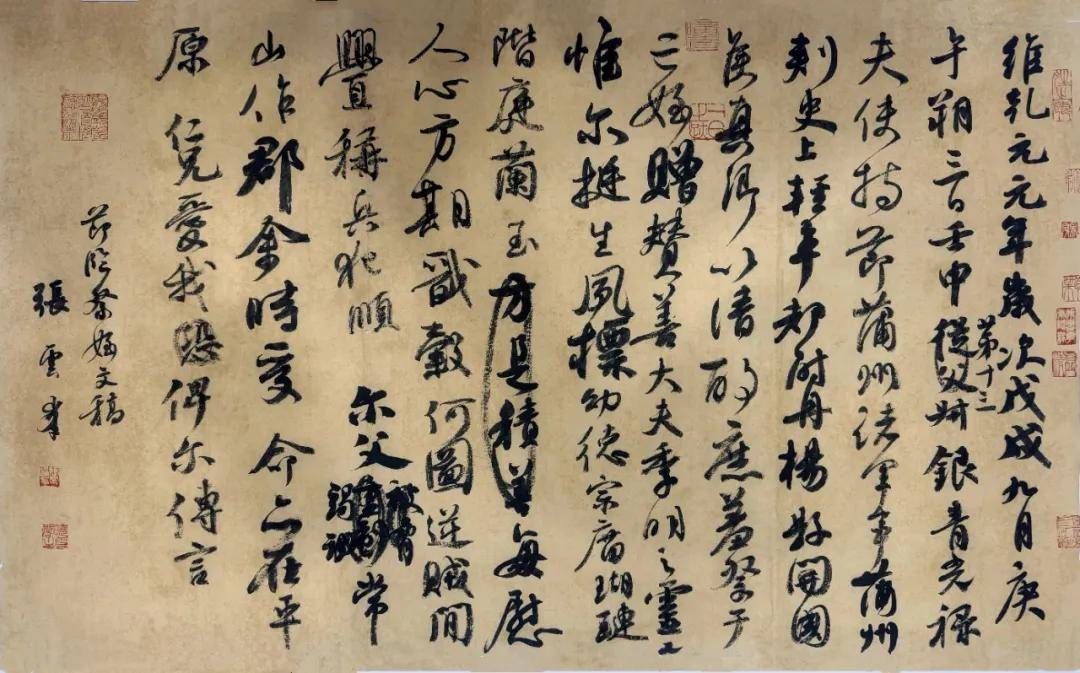 維乾元元年歲次戊戌九月庚
午朔三日壬申
第十三
從父叔銀青光祿
夫使持節蒲州諸軍事蒲州
刺史上輕車都尉丹楊縣開國
侯真卿以清酌庶羞祭于
亡姪贈贊善大夫季明之靈曰
惟爾挺生夙標幼德宗廟瑚璉
階庭蘭玉方積善每慰
人心方期戩穀何圖逆賊間
釁稱兵犯順 爾父竭誠常
山作郡余時受 命亦在平
原仁兄愛我恐俾爾傳言
節臨祭姪文稿
張雲